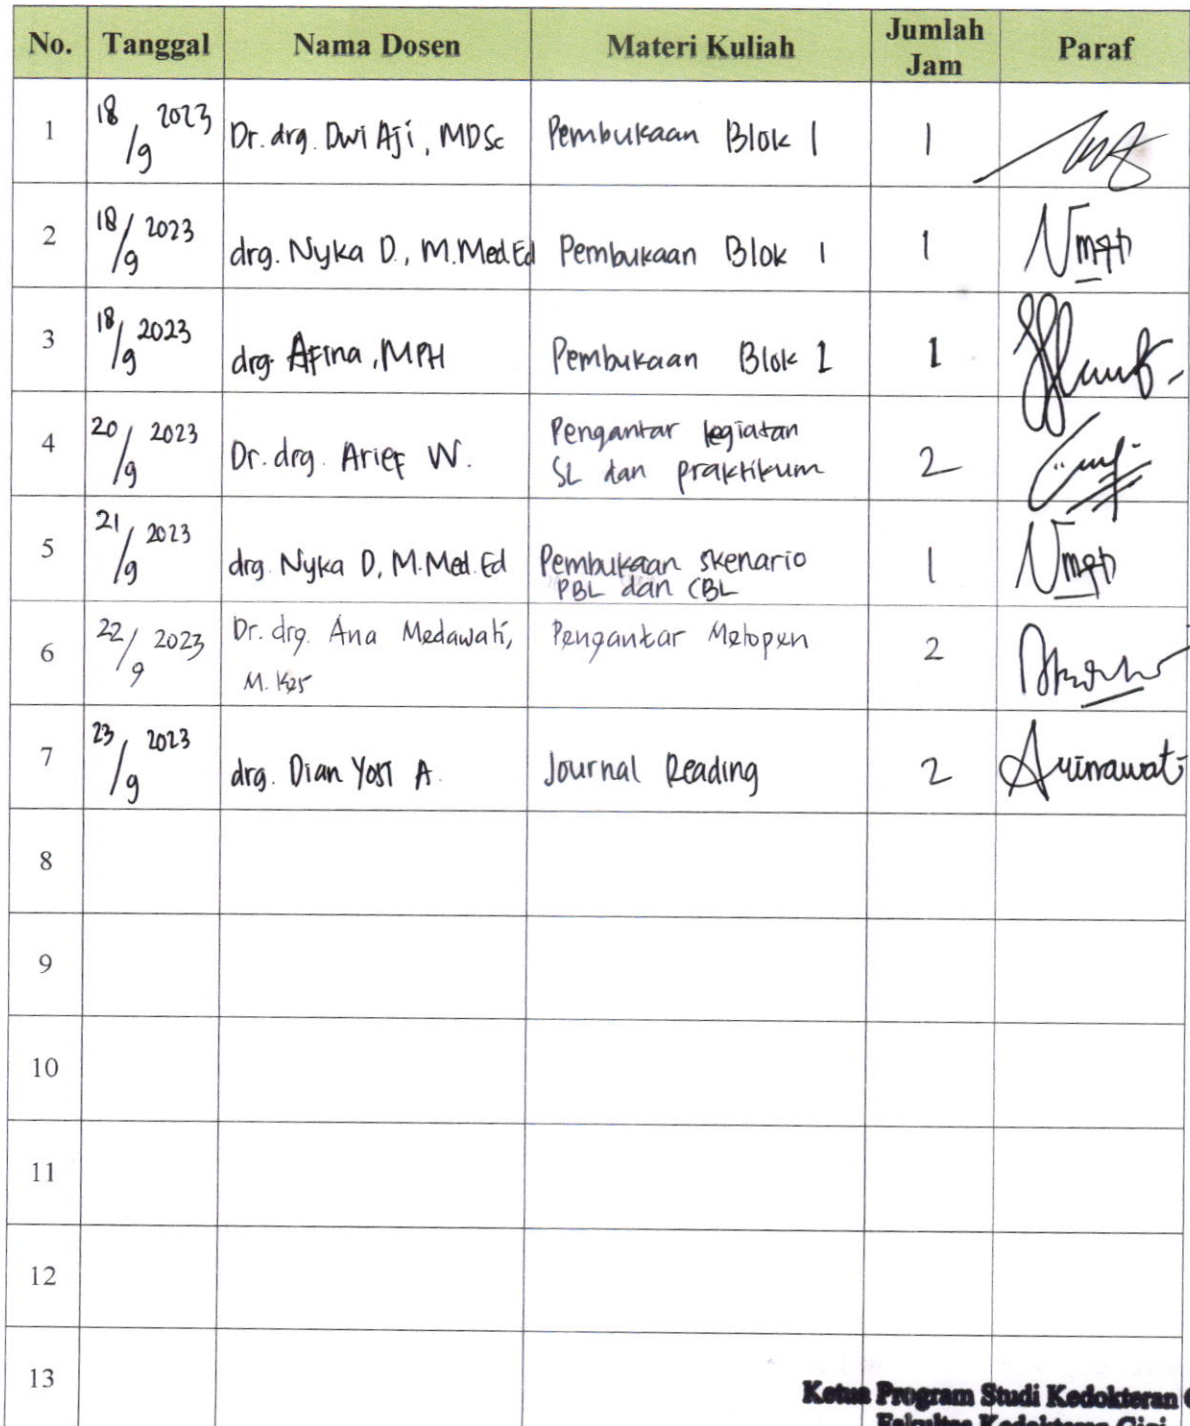 No. Tanggal Nama Dosen Materi Kuliah Jumlah Jam Paraf
1 18/9 2023 Dr. drg. Dwi Aji, MDSc Pembukaan Blok 1 1
2 18/9 2023 drg. Nyka D., M.Med.Ed Pembukaan Blok 1 1
3 18/9 2023 drg. Afina, MPH Pembukaan Blok 1 1
4 20/9 2023 Dr. drg. Arief W. Pengantar kegiatan
SL dan praktikum 2
5 21/9 2023 drg. Nyka D, M.Med.Ed Pembukaan skenario
PBL dan CBL 1
6 22/9 2023 Dr. drg. Ana Medawati, Pengantar Metopen 2
M. Kes
7 23/9 2023 drg. Dian Yosi A. Journal Reading 2
8
9
10
11
12
13
Ketua Program Studi Kedokteran
Fakultas Kedokteran Gigi